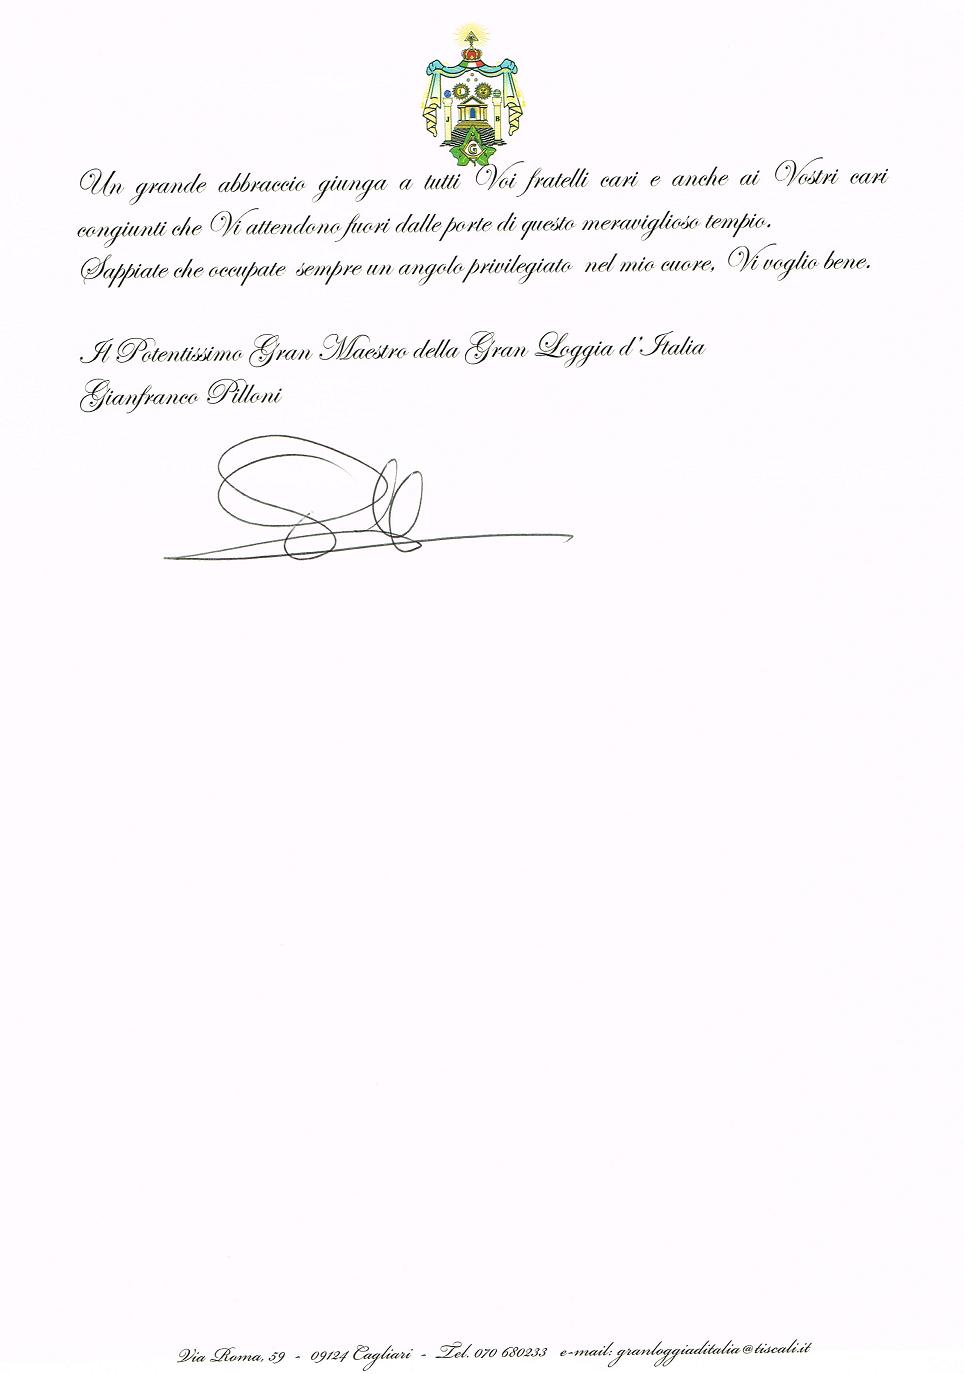 J B
G
Un grande abbraccio giunga a tutti Voi fratelli cari e anche ai Vostri cari
congiunti che Vi attendono fuori dalle porte di questo meraviglioso tempio.
Sappiate che occupate sempre un angolo privilegiato nel mio cuore. Vi voglio bene.
Il Potentissimo Gran Maestro della Gran Loggia d'Italia
Gianfranco Pilloni
Via Roma, 59 - 09124 Cagliari - Tel. 070 680233 e-mail: granloggiaditalia@tiscali.it